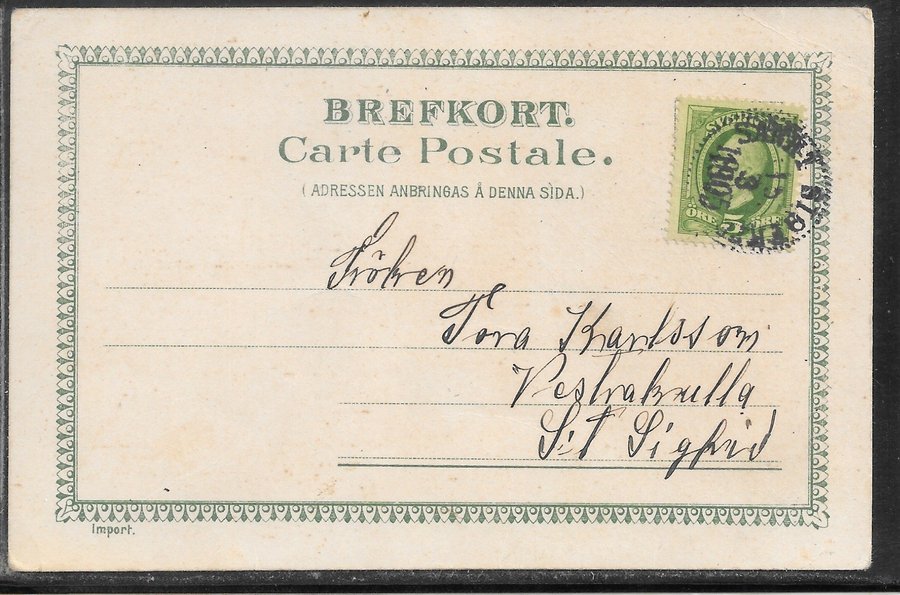 BREFKORT.
Carte Postale.
(ADRESSEN ANBRINGAS Å DENNA SIDA.)
ÖRE 5 ÖRE
SANKT SIGFRID
15
3
1903
Fröken
Tora Karlsson
Vestrakulla
S:t Sigfrid
Import.